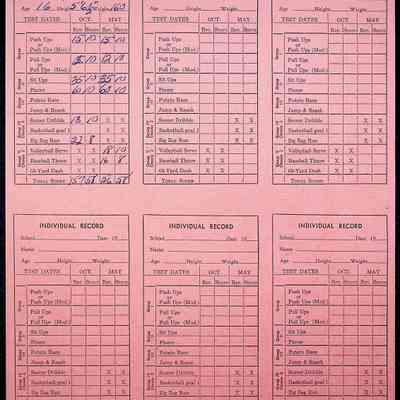 Age 16 Height Weight
TEST DATES OCT. MAY
Rec. Score Rec. Score
Push Ups 15 10 15 10
or
Push Ups (Mod.)
Pull Ups 10 12 10
or
Pull Ups (Mod.)
Sit Ups 35 10 35 10
Planse 60 10 10
Potato Race
Jump & Reach
Soccer Dribble 13 10 X X
Basketball goal X X
Zig Zag Run 22 8 X X
Volleyball Serve X X 18 10
Baseball Throw X X 16 8
60 Yard Dash X X
Total Score 58 58
Age Height Weight
TEST DATES OCT. MAY
Rec. Score Rec. Score
Push Ups
or
Push Ups (Mod.)
Pull Ups
or
Pull Ups (Mod.)
Sit Ups
Planse
Potato Race
Jump & Reach
Soccer Dribble X X
Basketball goal X X
Zig Zag Run X X
Volleyball Serve X X
Baseball Throw X X
60 Yard Dash X X
Total Score
Age Height Weight
TEST DATES OCT. MAY
Rec. Score Rec. Score
Push Ups
or
Push Ups (Mod.)
Pull Ups
or
Pull Ups (Mod.)
Sit Ups
Planse
Potato Race
Jump & Reach
Soccer Dribble X X
Basketball goal X X
Zig Zag Run X X
Volleyball Serve X X
Baseball Throw X X
60 Yard Dash X X
Total Score
INDIVIDUAL RECORD
School Date 19
Name
Age Height Weight
TEST DATES OCT. MAY
Rec. Score Rec. Score
Push Ups
or
Push Ups (Mod.)
Pull Ups
or
Pull Ups (Mod.)
Sit Ups
Planse
Potato Race
Jump & Reach
Soccer Dribble X X
Basketball goal X X
Zig Zag Run X X
INDIVIDUAL RECORD
School Date 19
Name
Age Height Weight
TEST DATES OCT. MAY
Rec. Score Rec. Score
Push Ups
or
Push Ups (Mod.)
Pull Ups
or
Pull Ups (Mod.)
Sit Ups
Planse
Potato Race
Jump & Reach
Soccer Dribble X X
Basketball goal X X
Zig Zag Run X X
INDIVIDUAL RECORD
School Date 19
Name
Age Height Weight
TEST DATES OCT. MAY
Rec. Score Rec. Score
Push Ups
or
Push Ups (Mod.)
Pull Ups
or
Pull Ups (Mod.)
Sit Ups
Planse
Potato Race
Jump & Reach
Soccer Dribble X X
Basketball goal X X
Zig Zag Run X X